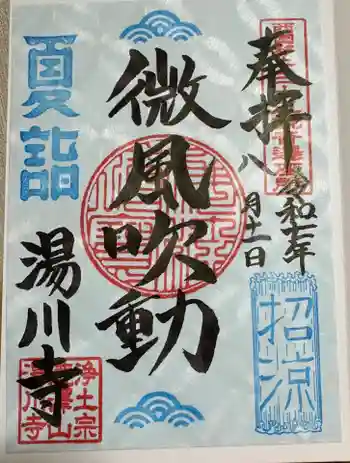 奉拝
令和七年
八月十一日
微風吹動
夏詣
招涼
湯川寺
浄土宗
湯川寺